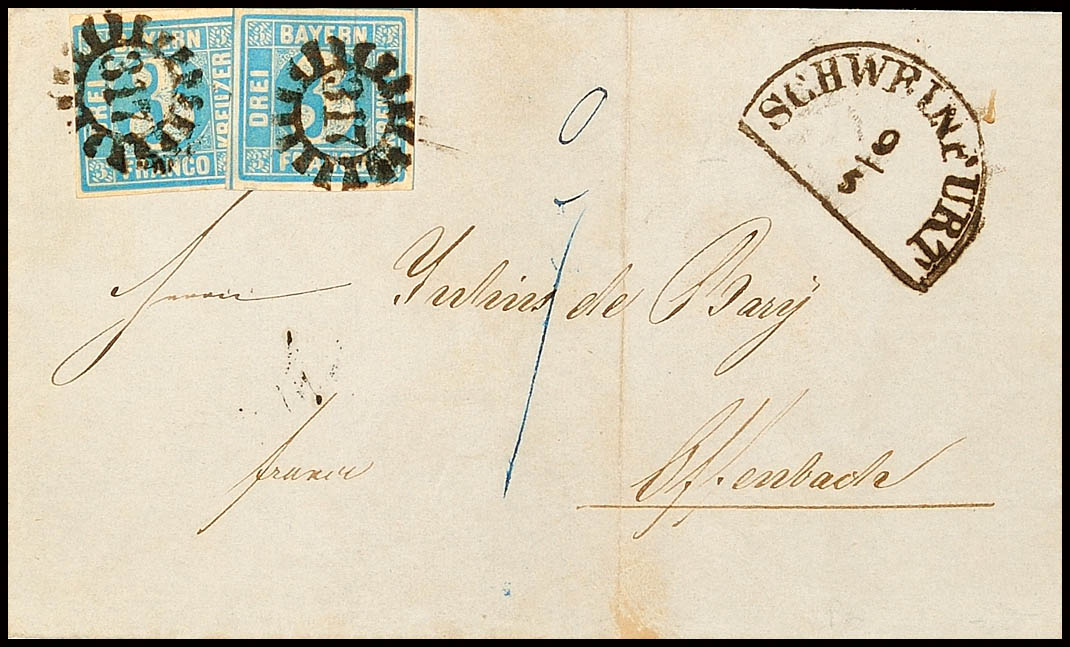 BAYERN
DREI
3
KREUZER
FRANCO
317
BAYERN
DREI
3
317
SCHWEINFURT
9
5
Herrn
Julius de Bary
franco
Offenbach